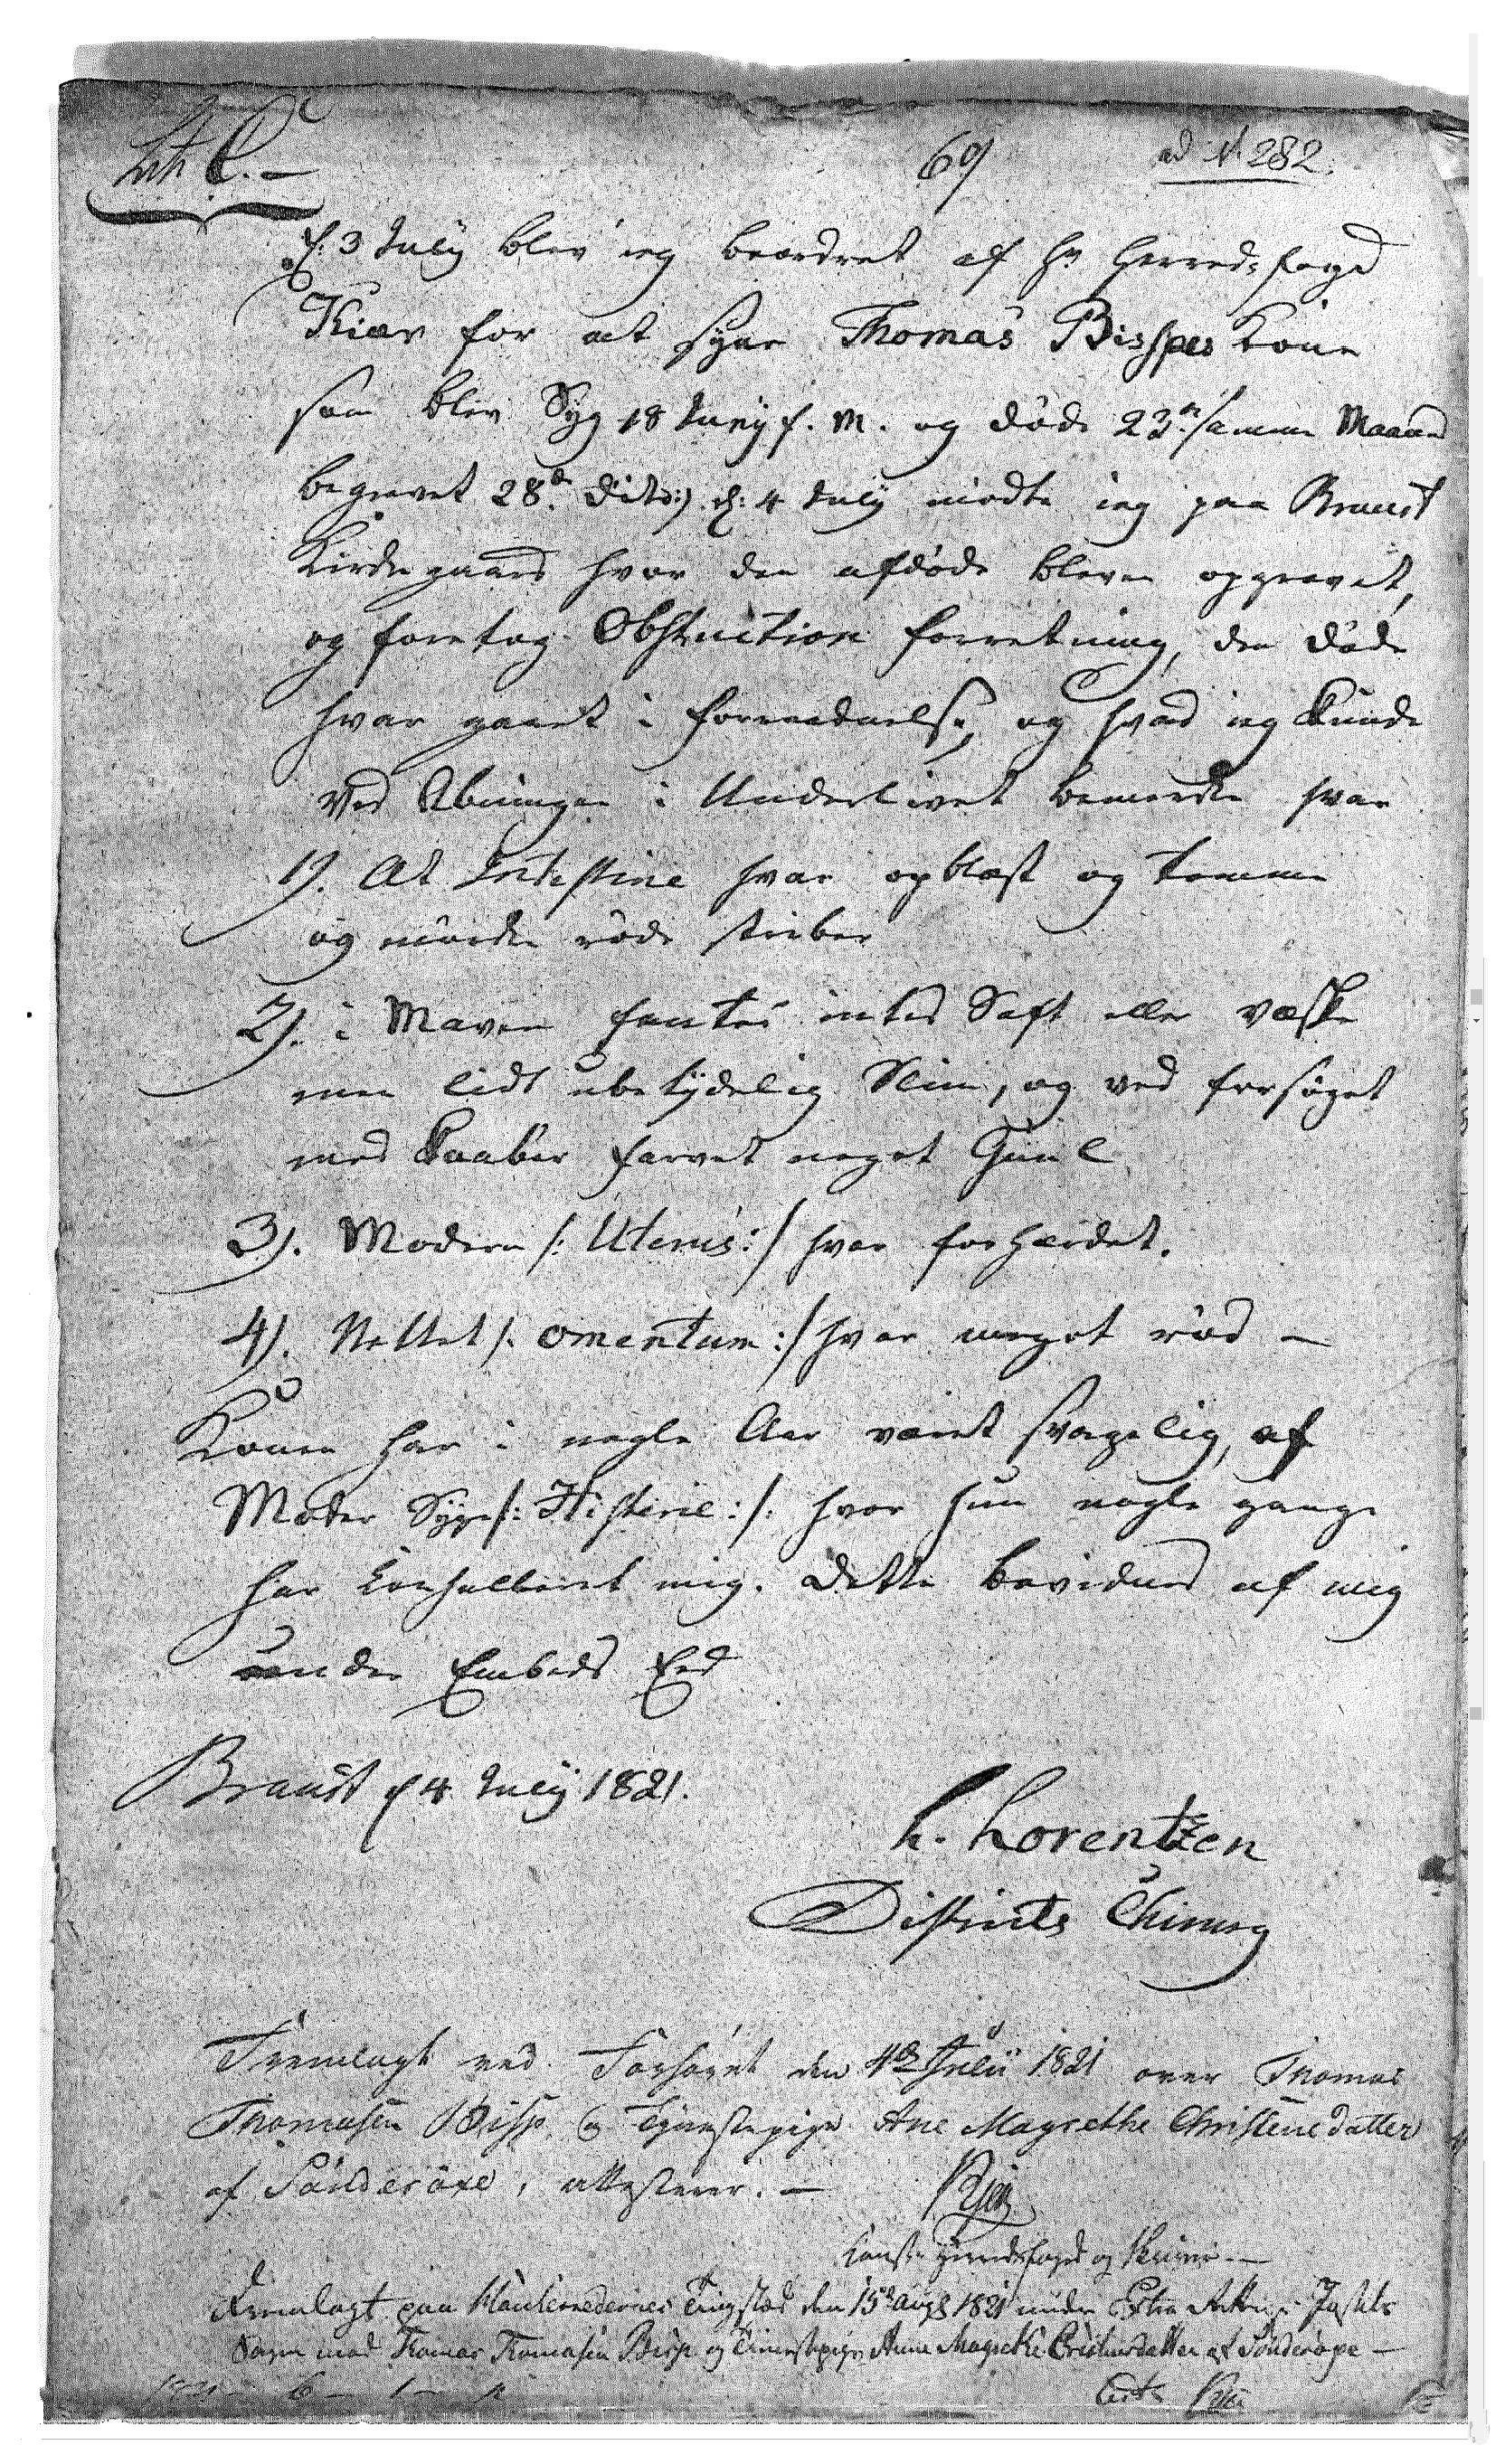 Litr C. —
69
ad N. 282.
d: 3 July blev ieg beordret af Hr Herreds foged
Kiær for at syne Thomas Bispes Kone
som blev Syg 18 Juny f. M. og döde 23de samme Maaned
begravet 28de dito:). d: 4 July mödte ieg paa Braust
Kirdegaard hvor den afdöde bleven opgravet,
og foretog Obstuction forretning, den döde
hvar gaaet i forraadnelse, og hvad ieg kunde
ved Abningen i Underlivet bemerke hvar
1). At Intestine hvar opblæst og tomme
og mörke röde striber
2). i Maven fantes intet Saft eller væske
men lidt ubetÿdelig Slim, og ved forsöget
med Kaaber farvet noget Guul
3). Moderen /: Uterus :/ hvar forhærdet.
4). Nettet /: omentum :/ hvar meget röd —
Konen har i nogle Aar været svagelig, af
Moder Syge /: Histerie :/: hvor hun nogle gange
har konsulleret mig. dette bevidnes af mig
under Embeds Eed
Braust d 4 July 1821.
h. Lorentzen
Districts Chirurg
Fremlagt ved Forhöret den 4de Julii 1821 over Thomas
Thomasen Bisp og Tjenestepige Ane Magrethe Christensdatter
af Sönderöxe, attesterer. —
Kiær
Const. Herredsfoged og Skriver —
Fremlagt paa Han herredernes Tingsted den 15de Augs 1821 under Extra Rettens Justits
Sagen mod Thomas Thomasen Bisp og Tienestepige Anne Magrethe Cristensdatter af Sönderöxe —
Kiær